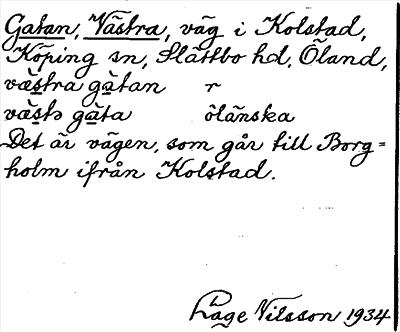 Gatan, Västra, väg i Kolstad,
Köping sn, Slättbo hd, Öland,
væstra gatan r
væstə gata ölänska
Det är vägen, som går till Borg=
holm ifrån Kolstad.
Lage Nilsson 1934